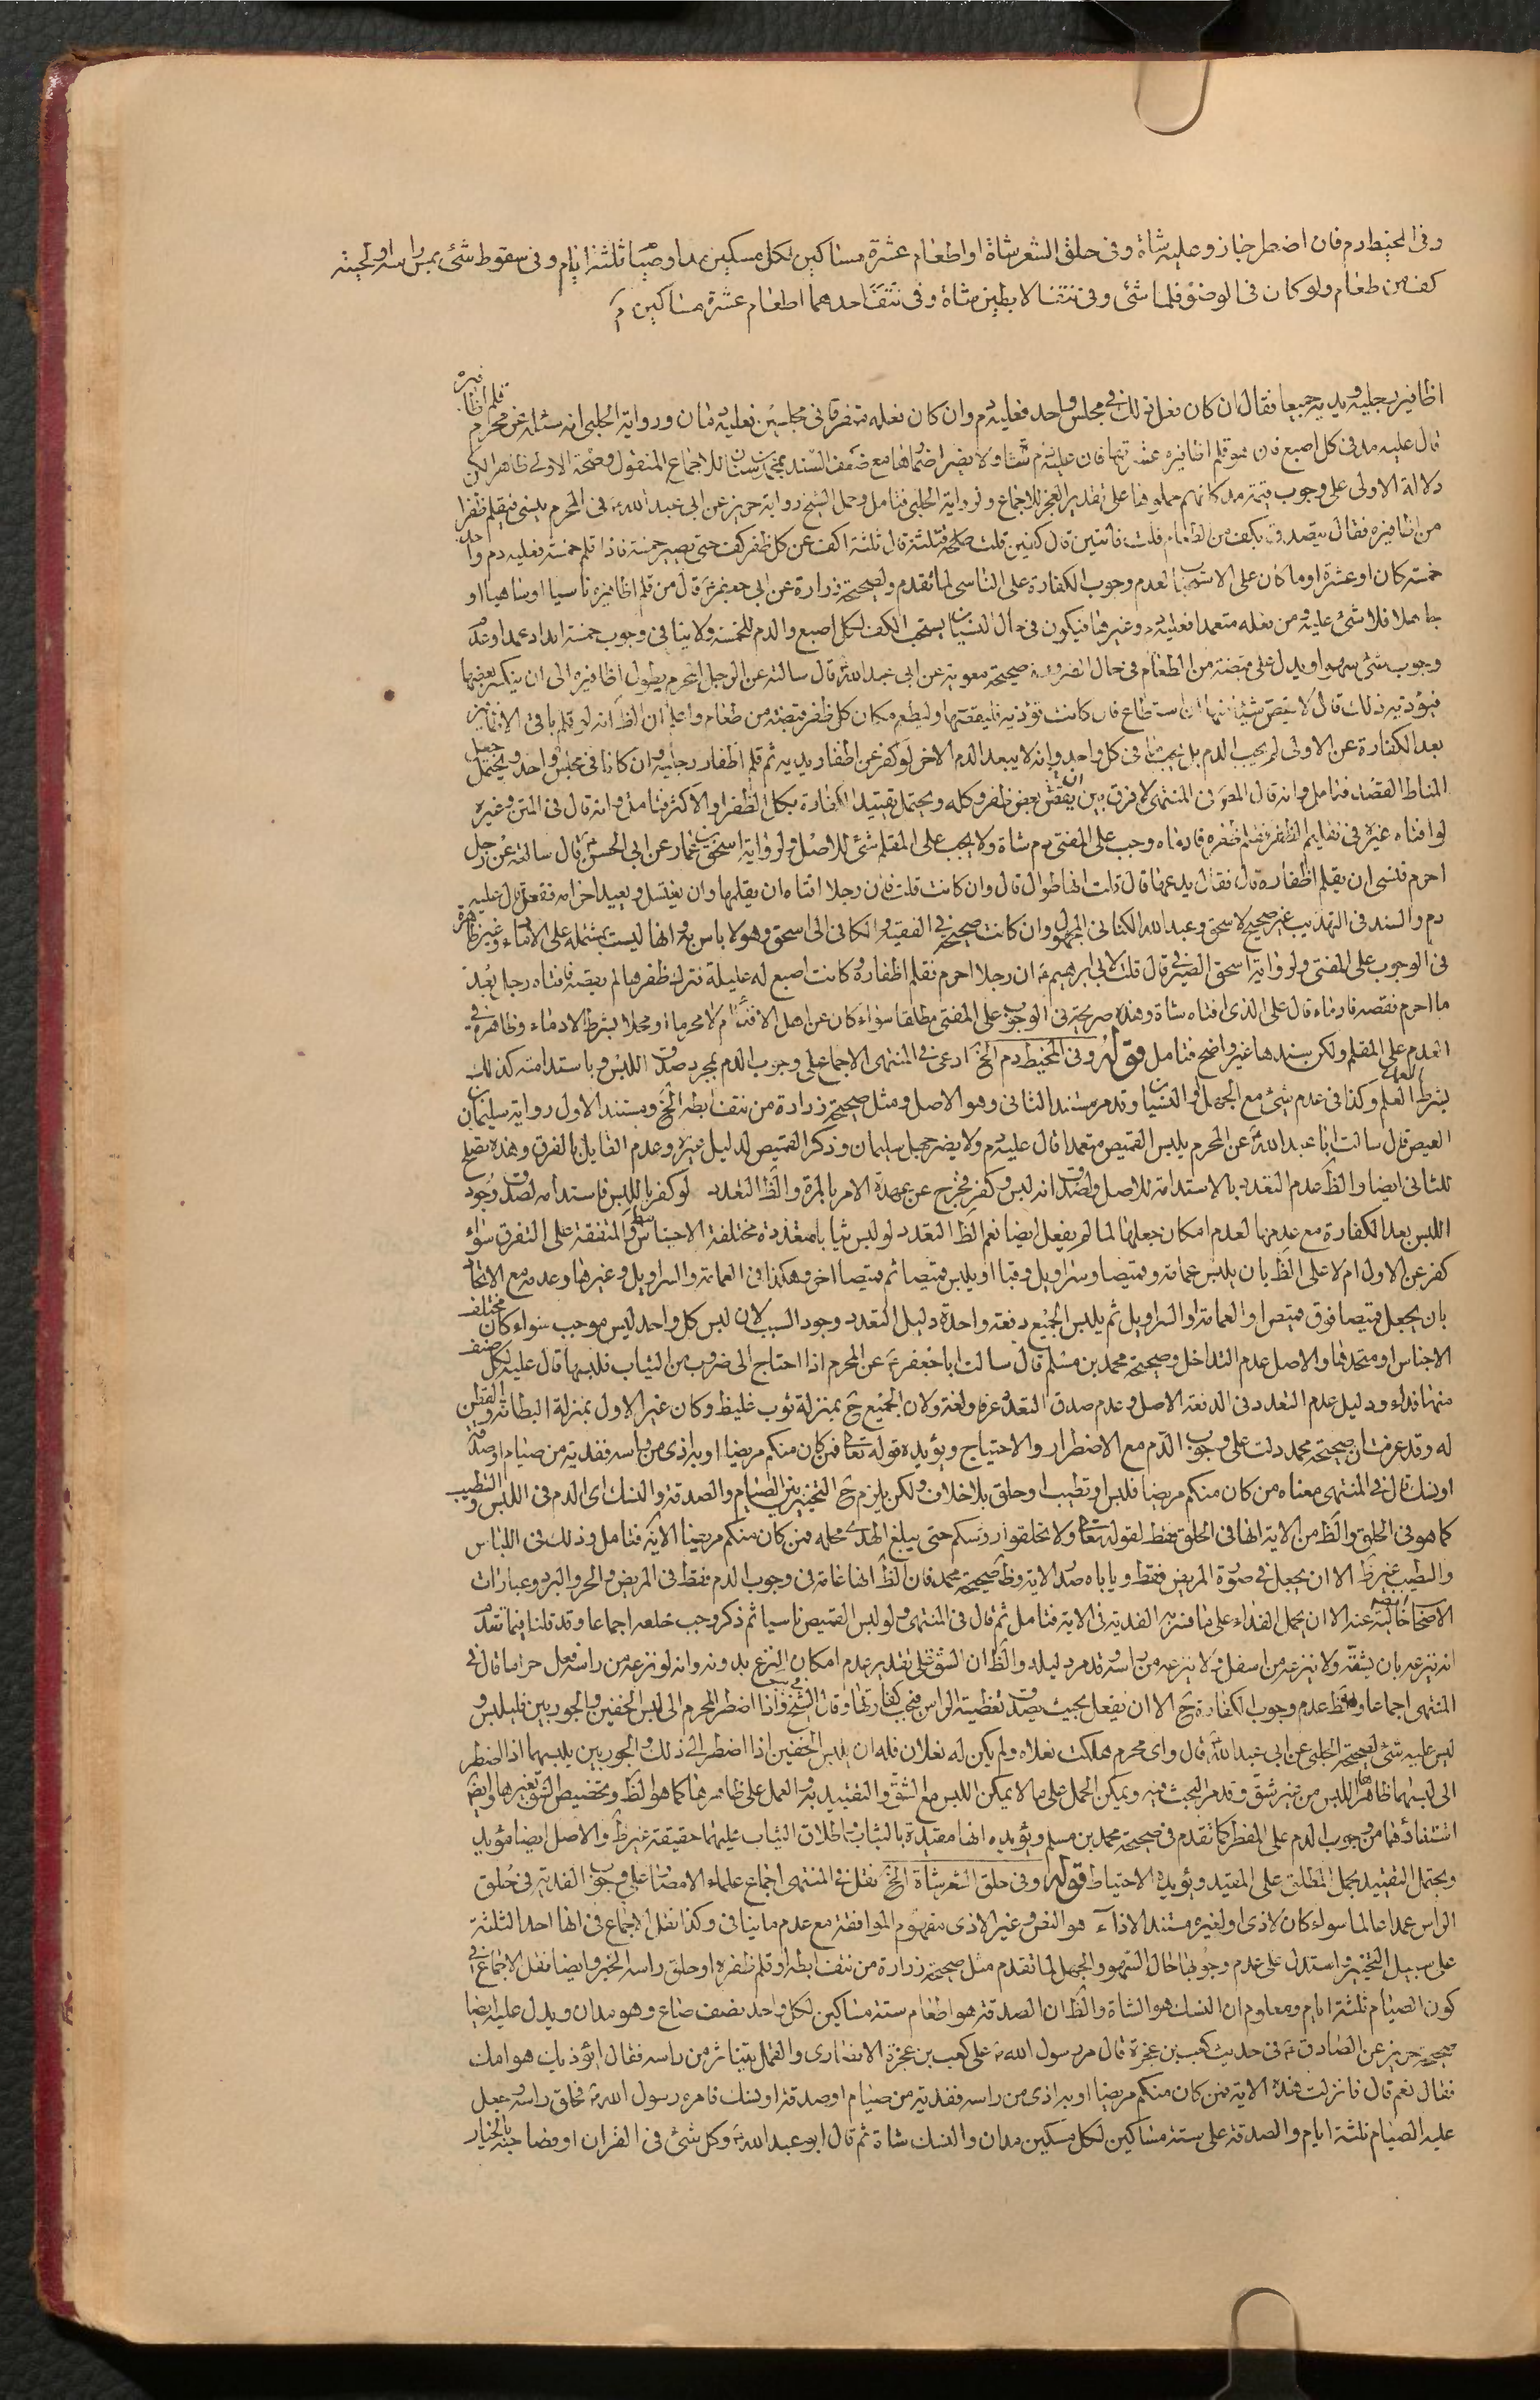 وفى المخيط دم فان اضطر جاز وعليه شاة وفى حلق الشعر شاة او اطعام عشرة مساكين لكل مسكين مد او صيام ثلثة ايام وفى سقوط شئ بمس راسه او لحيته
كف من طعام ولو كان فى الوضوء فلا شئ وفى نتف الابطين شاة وفى نتف احدهما اطعام عشرة مساكين
اظافير رجليه ويديه جميعا فقال ان كان فعل ذلك فى مجلس واحد فعليه دم وان كان فعله متفرقا فى مجلسين فعليه دمان ورواية الحلبى انه سئله عن محرم قلم اظافيره
قال عليه مد فى كل اصبع فان هو قلم اظافيره عشرتها فان عليه دم شاة ولا يضر اضمارها مع ضعف السند للاجماع المنقول وصحة الاولى ظاهر لكن
دلالة الاولى على وجوب قيمة مد كانهم حملوها على تقدير العجز للاجماع ولرواية الحلبى فتامل وحمل الشيخ رواية حريز عن ابى عبد الله فى المحرم ينسى فيقلم ظفرا
من اظافيره فقال يتصدق بكف من الطعام قلت فاثنتين قال كفين قلت فثلثة قال ثلثة اكف عن كل ظفر كف حتى يصير خمسة فاذا قلم خمسة فعليه دم واحد
خمسة كان او عشرة او ما كان على الاستحباب لعدم وجوب الكفارة على الناسى لما تقدم ولصحيحة زرارة عن ابى جعفر قال من قلم اظافيره ناسيا او ساهيا او
جاهلا فلا شئ عليه ومن فعله متعمدا فعليه دم وغيرها فيكون فى حال النسيان يستحب الكف لكل اصبع والدم للخمسة ولا ينافى وجوب خمسة امداد عمدا وعدم
وجوب شئ سهوا ويدل على قبضة من الطعام فى حال الضرورة صحيحة معوية عن ابى عبد الله قال سالته عن الرجل المحرم يطول اظافيره الى ان ينكسر بعضها
فيؤذيه ذلك قال لا يقص شيئا منها ان استطاع فان كانت تؤذيه فليقصها وليطعم مكان كل ظفر قبضة من طعام واعلم ان الظ انه لو قلم باقى الاظافير
بعد الكفارة عن الاولى لم يجب الدم بل يجب فى كل واحد وانه لا يبعد الدم الاخر لو كفر عن اظفار يديه ثم قلم اظفار رجليه وان كانا فى مجلس واحد ويحتمل جعل
المناط القصد فتامل وانه قال المصنف فى المنتهى لا فرق بين ان يقص بعض ظفر وكله ويحتمل تقييد الكفارة بكل الظفر او الاكثر فتامل وانه قال فى المتن وغيره
لو افتاه غيره فى تقليم الظفر فقلم ظفره فادماه وجب على المفتى دم شاة ولا يجب على المقلم شئ للاصل ولرواية اسحق بن عمار عن ابى الحسن قال سالته عن رجل
احرم فنسى ان يقلم اظفاره قال فقال يدعها قال قلت انها طوال قال وان كانت قلت فان رجلا افتاه ان يقلمها وان يغتسل ويعيد احرامه ففعل قال عليه
دم والسند فى التهذيب غير صحيح لاسحق وعبد الله الكنانى المجهول وان كانت صحيحة فى الفقيه والكافى الى اسحق وهو لا باس به وانها ليست بمشتملة على الادماء وغير ظاهرة
فى الوجوب على المفتى ولرواية اسحق الصيرفى قال قلت لابى ابرهيم ان رجلا احرم فقلم اظفاره وكانت اصبع له عليلة فترك ظفرها لم يقصه فافتاه رجل بعد
ما احرم فقصه فادماه قال على الذى افتاه شاة وهذه صريحة فى الوجوب على المفتى مطلقا سواء كان من اهل الافتاء ام لا محرما او محلا بشرط الادماء وظاهرة فى
العدم على المقلم ولكن سندها غير واضح فتامل قوله وفى المخيط دم الخ ادعى فى المنتهى الاجماع على وجوب الدم بمجرد صدق اللبس وباستدامته كذلك
بشرط العلم وكذا فى عدم شئ مع الجهل او النسيان وقد مر مستند الثانى وهو الاصل ومثل صحيحة زرارة من نتف ابطه الخ ومستند الاول رواية سليمان بن
العيص قال سالت ابا عبد الله عن المحرم يلبس القميص متعمدا قال عليه دم ولا يضر جهل سليمان وذكر القميص لدليل غيره وعدم القايل بالفرق وهذه تصلح
للثانى ايضا والظ عدم التعدد بالاستدامة للاصل ولصدق انه لبس وكفر فخرج عن عهدة الامر بالمرة والظ التعدد لو كفر باللبس فاستدامه لصدق وجود
اللبس بعد الكفارة مع عدمها لعدم امكان جعلها لما لم يفعل ايضا نعم الظ التعدد لو لبس ثيابا متعددة مختلفة الاجناس والمتفقة على التفرق سواء
كفر عن الاول ام لا على الظ بان يلبس عمامة وقميصا وسراويل وقبا او يلبس قميصا ثم قميصا اخر وهكذا فى العمامة والسراويل وغيرها وعدمه مع الاتحاد
بان يجعل قميصا فوق قميص او العمامة او السراويل ثم يلبس الجميع دفعة واحدة دليل التعدد وجود السبب لان لبس كل واحد لبس موجب سواء كان مختلف
الاجناس او متحدها والاصل عدم التداخل وصحيحة محمد بن مسلم قال سالت ابا جعفر عن المحرم اذا احتاج الى ضروب من الثياب فلبسها قال عليه لكل صنف
منها فداء ودليل عدم التعدد فى الدفعة الاصل وعدم صدق التعدد عرفا ولغة ولان الجميع ح بمنزلة ثوب غليظ وكان غير الاول بمنزلة البطانة والقطن
له وقد عرفت ان صحيحة محمد دلت على وجوب الدم مع الاضطرار والاحتياج ويؤيده قوله تعالى فمن كان منكم مريضا او به اذى من راسه ففدية من صيام او صدقة
او نسك قال فى المنتهى معناه من كان منكم مريضا فلبس او تطيب او حلق بلا خلاف ولكن يلزم ح التخيير بين الصيام والصدقة والنسك اى الدم فى اللبس والتطيب
كما هو فى الحلق والظ من الاية انها فى الحلق فقط لقوله تعالى ولا تحلقوا رؤسكم حتى يبلغ الهدى محله فمن كان منكم مريضا الاية فتامل وذلك فى اللباس
والطيب غير ظ الا ان يجعل فى صورة المريض فقط وياباه صدر الاية وظ صحيحة محمد فان الظ انها عامة فى وجوب الدم فقط فى المريض والحر والبرد وعبارات
الاصحاب خالية عنه الا ان يحمل الفداء على ما فسر به الفدية فى الاية فتامل ثم قال فى المنتهى ولو لبس القميص ناسيا ثم ذكر وجب خلعه اجماعا وقد قلنا فيما تقدم
انه ينزعه بان يشقه ولا ينزعه من اسفل ولا ينزعه من راسه وقد مر دليله والظ ان الشق على تقدير عدم امكان النزع بدونه وانه لو نزعه من راسه فعل حراما قال فى
المنتهى اجماعا والظ عدم وجوب الكفارة ح الا ان يفعل بحيث يصدق تغطية الراس فتجب كفارتها وقال الشيخ واذا اضطر المحرم الى لبس الخفين والجوربين فليلبس و
ليس عليه شئ لصحيحة الحلبى عن ابى عبد الله قال واى محرم هلكت نعلاه ولم يكن له نعلان فله ان يلبس الخفين اذا اضطر الى ذلك والجوربين يلبسهما اذا اضطر
الى لبسهما ظاهرها اللبس من غير شق وقد مر البحث فيه ويمكن الحمل على ما لا يمكن اللبس مع الشق والتقييد به والعمل على ظاهرها كما هو الظ وتخصيص الشق بغيرها وايضا
استفاد منها من وجوب الدم على المضطر كما تقدم فى صحيحة محمد بن مسلم ويؤيده انها مقيدة بالثياب واطلاق الثياب عليهما حقيقة غير ظ والاصل ايضا مؤيد
ويحتمل التقييد بحمل المطلق على المقيد ويؤيده الاحتياط قوله وفى حلق الشعر شاة الخ نقل فى المنتهى اجماع علماء الامصار على وجوب الفدية فى حلق
الراس عمدا عالما سواء كان لاذى او لغيره مستند الاذى هو النص وغير الاذى مفهوم الموافقة مع عدم ما ينافى وكذا نقل الاجماع فى انها احد الثلثة
على سبيل التخيير واستدل على عدم وجوبها حال السهو والجهل لما تقدم مثل صحيحة زرارة من نتف ابطه او قلم ظفره او حلق راسه الخبر وايضا نقل الاجماع فى
كون الصيام ثلثة ايام ومعلوم ان النسك هو الشاة والظ ان الصدقة هو اطعام ستة مساكين لكل واحد نصف صاع وهو مدان ويدل عليه ايضا
صحيحة حريز عن الصادق فى حديث كعب بن عجرة قال مر رسول الله على كعب بن عجرة الانصارى والقمل يتناثر من راسه فقال اتؤذيك هوامك
فقال نعم قال فانزلت هذه الاية فمن كان منكم مريضا او به اذى من راسه ففدية من صيام او صدقة او نسك فامره رسول الله فحلق راسه وجعل
عليه الصيام ثلثة ايام والصدقة على ستة مساكين لكل مسكين مدان والنسك شاة ثم قال ابو عبد الله وكل شئ فى القران او فصاحبه بالخيار